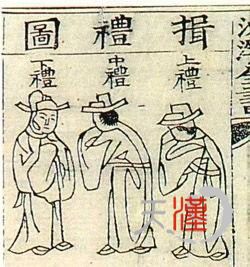 揖禮圖
上禮
中禮
下禮
天漢